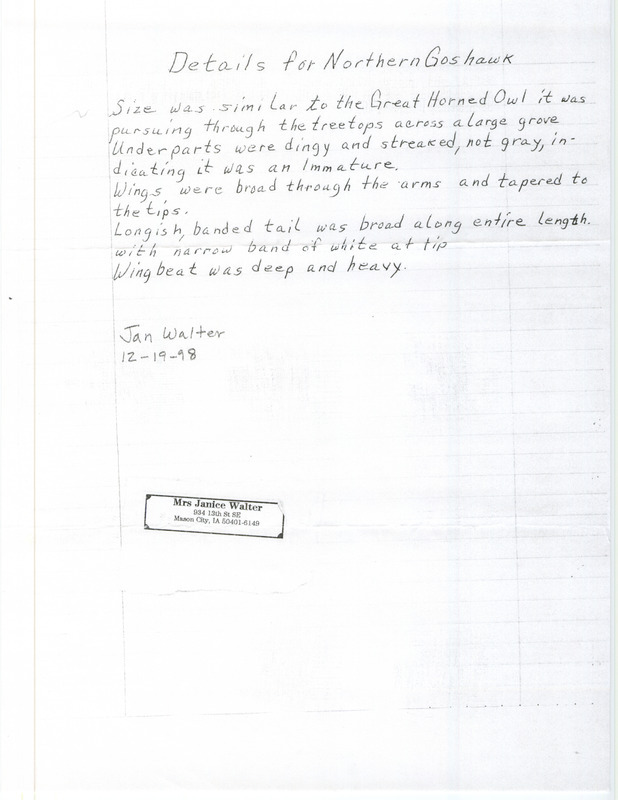 Details for Northern Goshawk
Size was similar to the Great Horned Owl it was
pursuing through the treetops across a large grove
Underparts were dingy and streaked, not gray, in-
dicating it was an Immature.
Wings were broad through the arms and tapered to
the tips.
Longish, banded tail was broad along entire length.
with narrow band of white at tip
Wingbeat was deep and heavy.
Jan Walter
12-19-98
Mrs Janice Walter
934 13th St SE
Mason City, IA 50401-6149